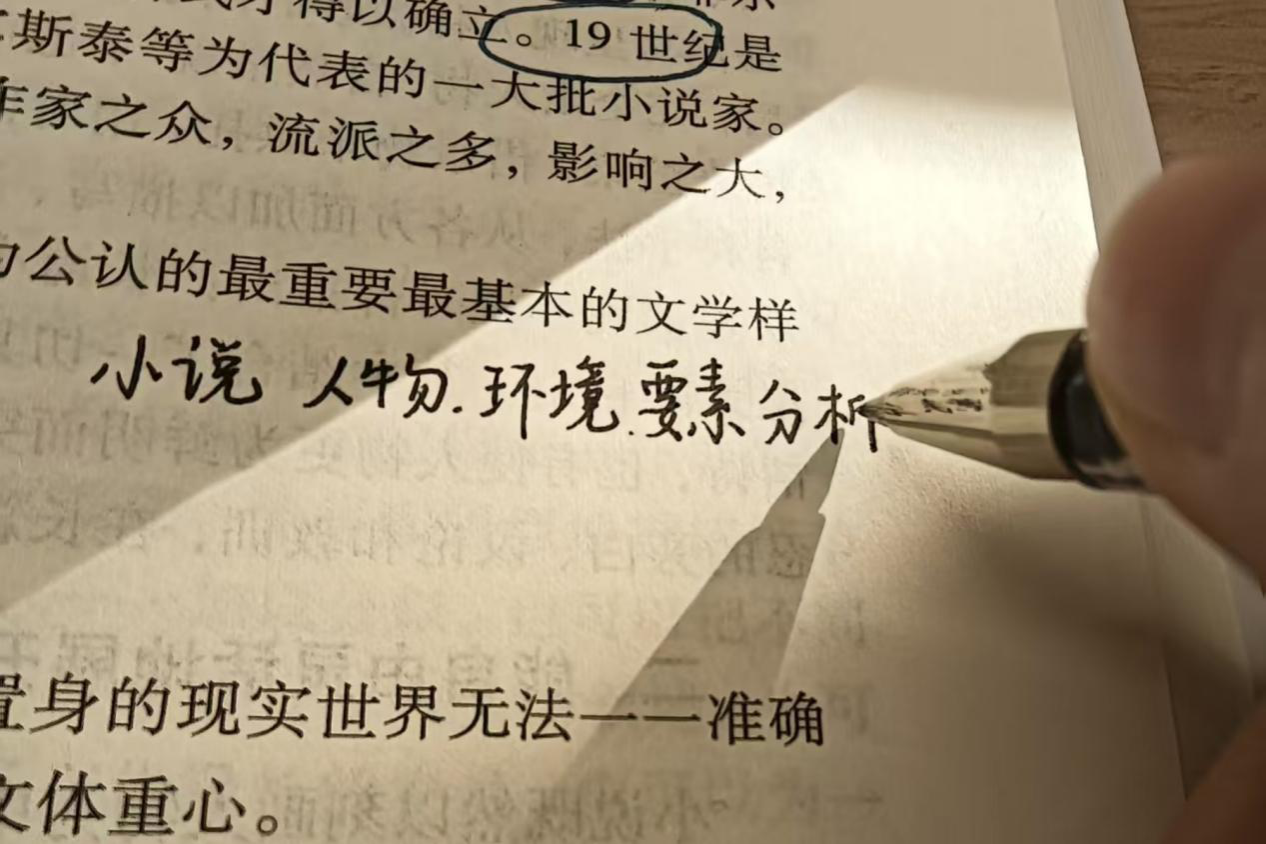 得以确立。19世纪是
斯泰等为代表的一大批小说家。
作家之众，流派之多，影响之大，
为公认的最重要最基本的文学样
小说 人物.环境.要素分析
置身的现实世界无法——准确
文体重心。